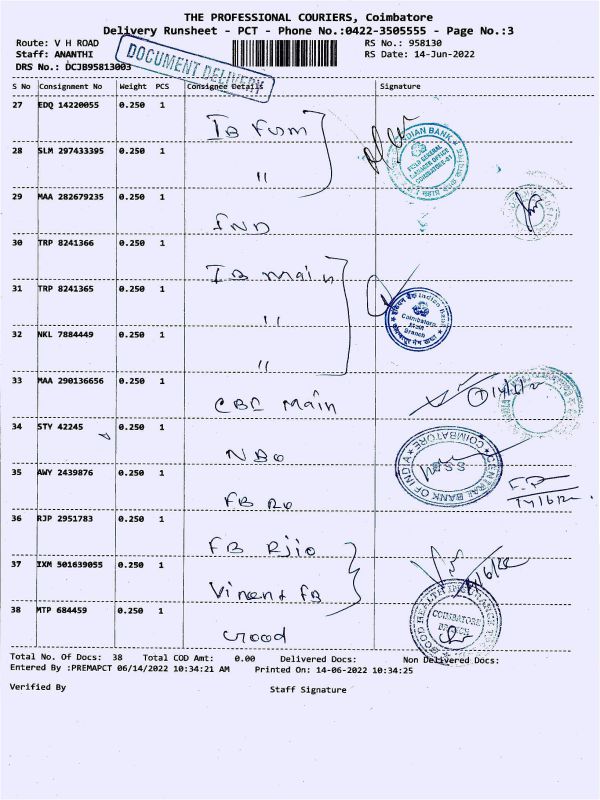 THE PROFESSIONAL COURIERS, Coimbatore
Delivery Runsheet - PCT - Phone No.:0422-3505555 - Page No.:3
Route: V H ROAD RS No.: 958130
Staff: ANANTHI RS Date: 14-Jun-2022
DRS No.: DCJB95813003
DOCUMENT DELIVERY
S No Consignment No Weight PCS Consignee Details Signature
27 EDQ 14220055 0.250 1
IB Fum
INDIAN BANK
28 SLM 297433395 0.250 1
"
29 MAA 282679235 0.250 1
IND
30 TRP 8241366 0.250 1
IB Main
31 TRP 8241365 0.250 1
"
Indian Bank
Coimbatore
Main
Branch
32 NKL 7884449 0.250 1
"
33 MAA 290136656 0.250 1
CBE Main
34 STY 42245 0.250 1
NBO
CENTRAL BANK OF INDIA
COIMBATORE
35 AWY 2439876 0.250 1
FB RO
14/6/22
36 RJP 2951783 0.250 1
FB Rjio
37 IXM 501639055 0.250 1
Vincent FB
38 MTP 684459 0.250 1
Good
COIMBATORE
BRANCH
Total No. Of Docs: 38 Total COD Amt: 0.00 Delivered Docs: Non Delivered Docs:
Entered By :PREMAPCT 06/14/2022 10:34:21 AM Printed On: 14-06-2022 10:34:25
Verified By Staff Signature